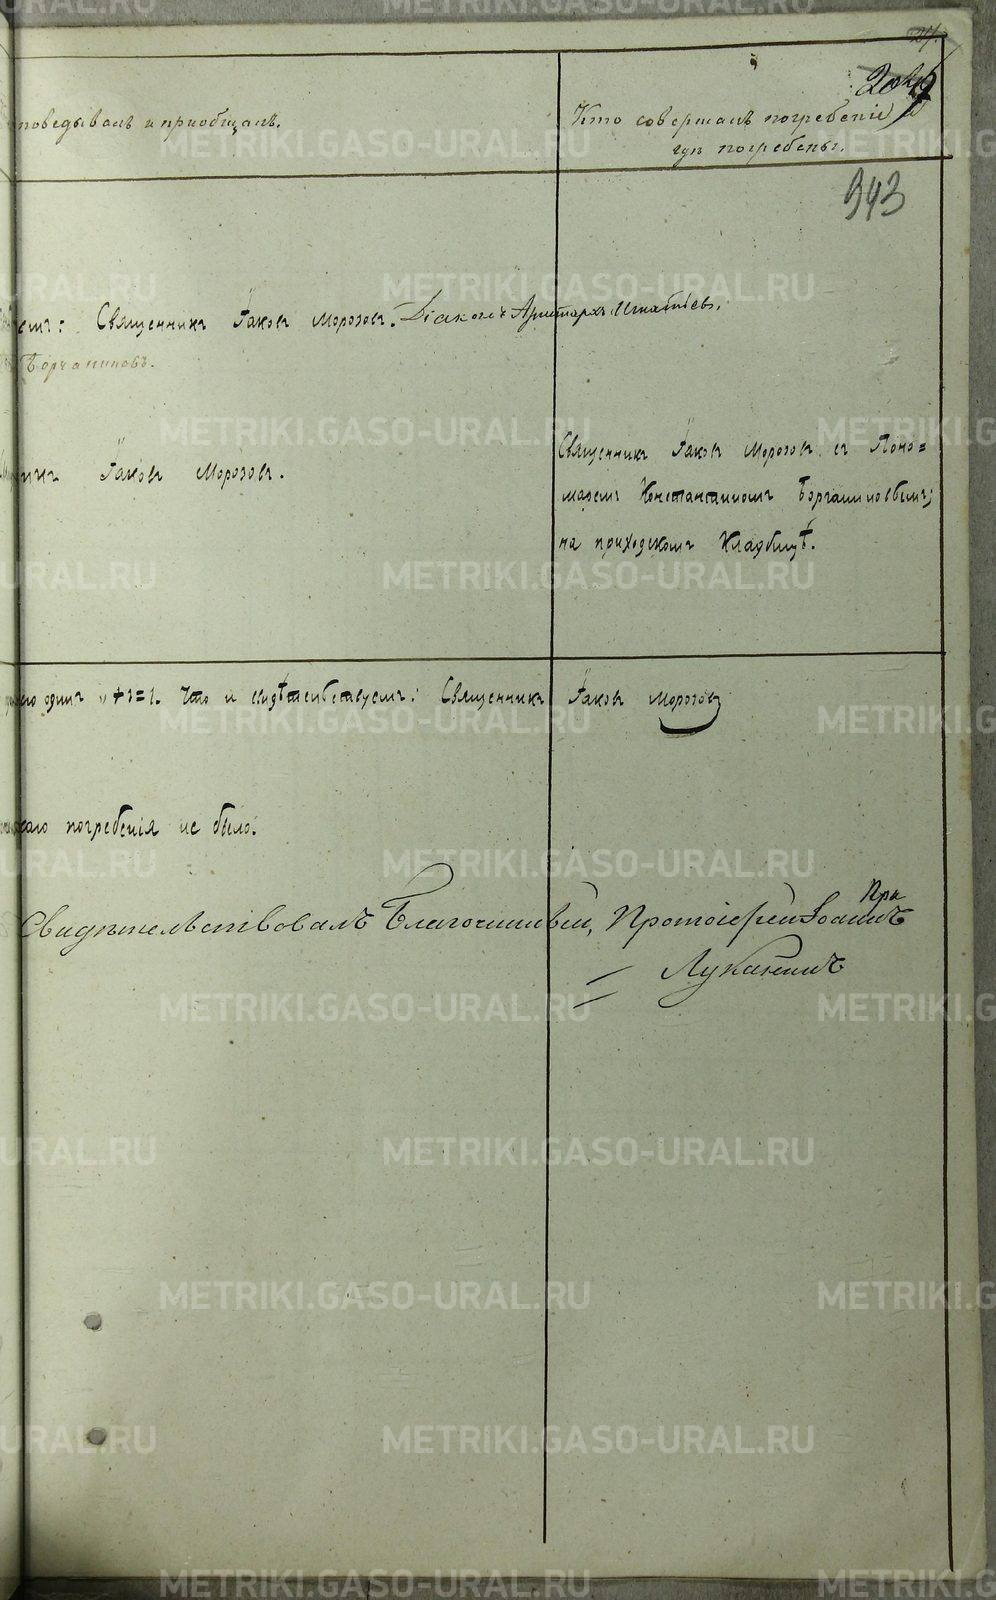 27.
поведывалъ и приобщалъ.
Кто совершалъ погребеніе и
гдѣ погребены.
943
емъ: Священникъ Іаковъ Морозовъ. Діаконъ Аристархъ Игнатіевъ.
Борчаниновъ.
никъ Іаковъ Морозовъ.
Священникъ Іаковъ Морозовъ съ Поно=
маремъ Константиномъ Борчаниновымъ;
на приходскомъ кладбищѣ.
одинъ „+1=1. Что и свидѣтельствуемъ: Священникъ Іаковъ Морозовъ
погребенія не было.
При
Свидѣтельствовалъ Благочинный, Протоіерей Іоаннъ
Луканинъ
METRIKI.GASO-URAL.RU